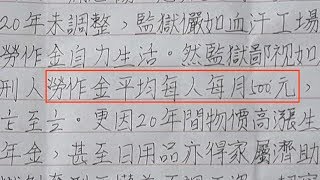 20年未調整，監獄儼如血汗工場
勞作金自力生活。然監獄鄙視如
刑人勞作金平均每人每月500元，
至。更因20年間物價高漲生
年金，甚至日用品亦得家屬濟助